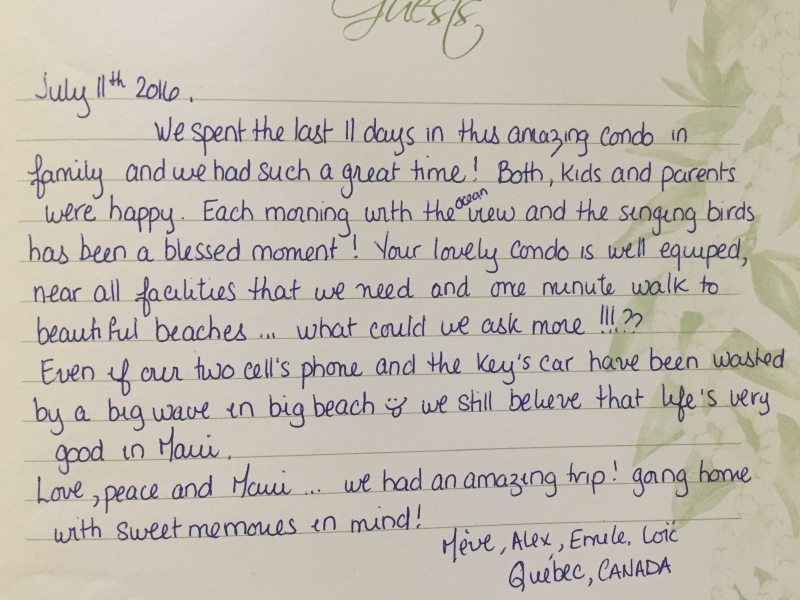 Guests
July 11th 2016.
We spent the last 11 days in this amazing condo in
family and we had such a great time! Both, kids and parents
were happy. Each morning with the ocean view and the singing birds
has been a blessed moment! Your lovely condo is well equiped,
near all facilities that we need and one minute walk to
beautiful beaches ... what could we ask more !!!??
Even if our two cell's phone and the key's car have been washed
by a big wave in big beach we still believe that life's very
good in Maui.
Love, peace and Maui ... we had an amazing trip! going home
with sweet memories in mind!
Mève, Alex, Emile, Loïc
Québec, CANADA